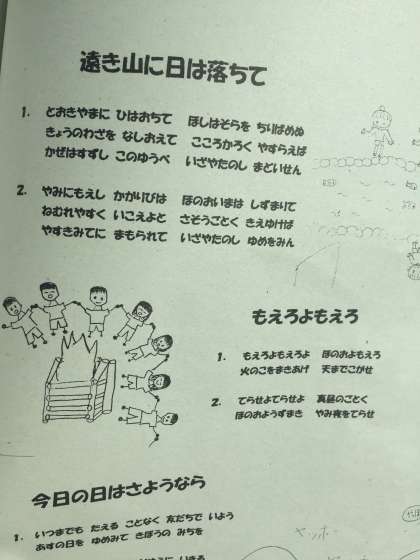 遠き山に日は落ちて
1. とおきやまに ひはおちて ほしはそらを ちりばめぬ
きょうのわざを なしおえて こころかろく やすらえば
かぜはすずし このゆうべ いざやたのし まどいせん
2. やみにもえし かがりびは ほのおいまは しずまりて
ねむれやすく いこえよと さそうごとく きえゆけば
やすきみてに まもられて いざやたのし ゆめをみん
もえろよもえろ
1. もえろよもえろよ ほのおよもえろ
火のこをまきあげ 天までこがせ
2. てらせよてらせよ 真昼のごとく
ほのおようずまき やみ夜をてらせ
今日の日はさようなら
1. いつまでも たえる ことなく 友だちで いよう
あすの日を ゆめみて きぼうの みちを
ヤッホー